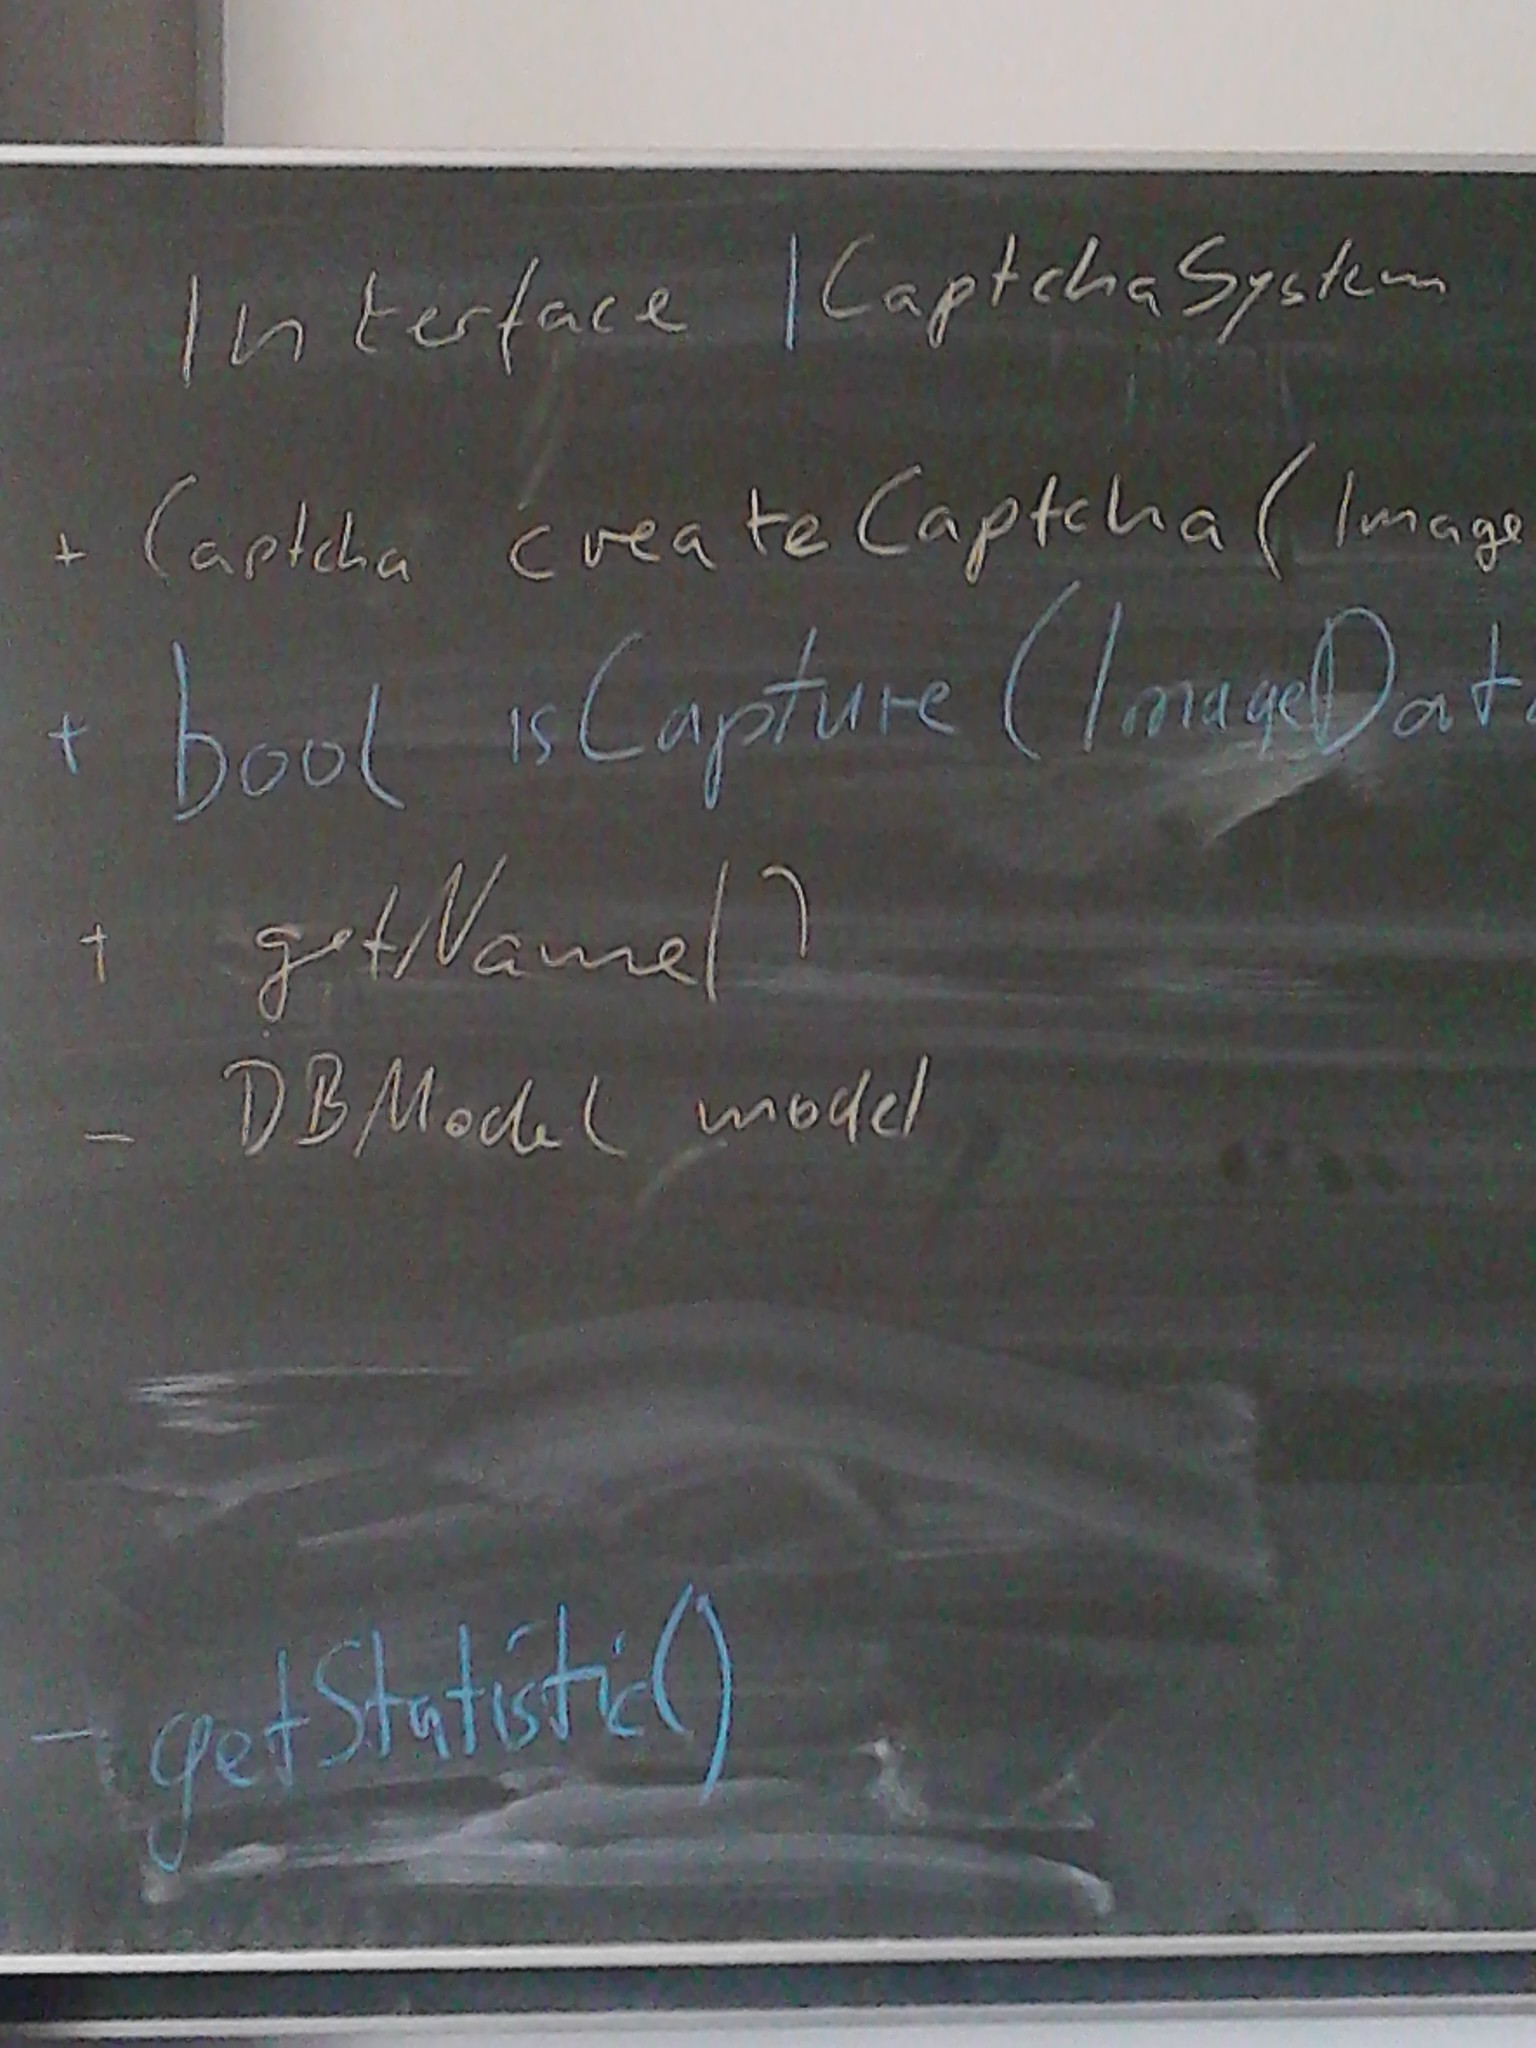 Interface ICaptchaSystem
+ Captcha createCaptcha(Image
+ bool isCapture(ImageData
+ getName()
- DBModel model
- getStatistic()